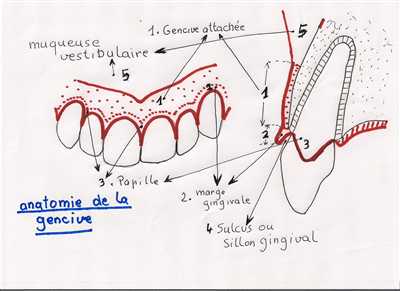 1. Gencive attachée
5
muqueuse
vestibulaire
5
1
1
2
3
3. Papille
2. marge
gingivale
anatomie de la
gencive
4 Sulcus ou
sillon gingival